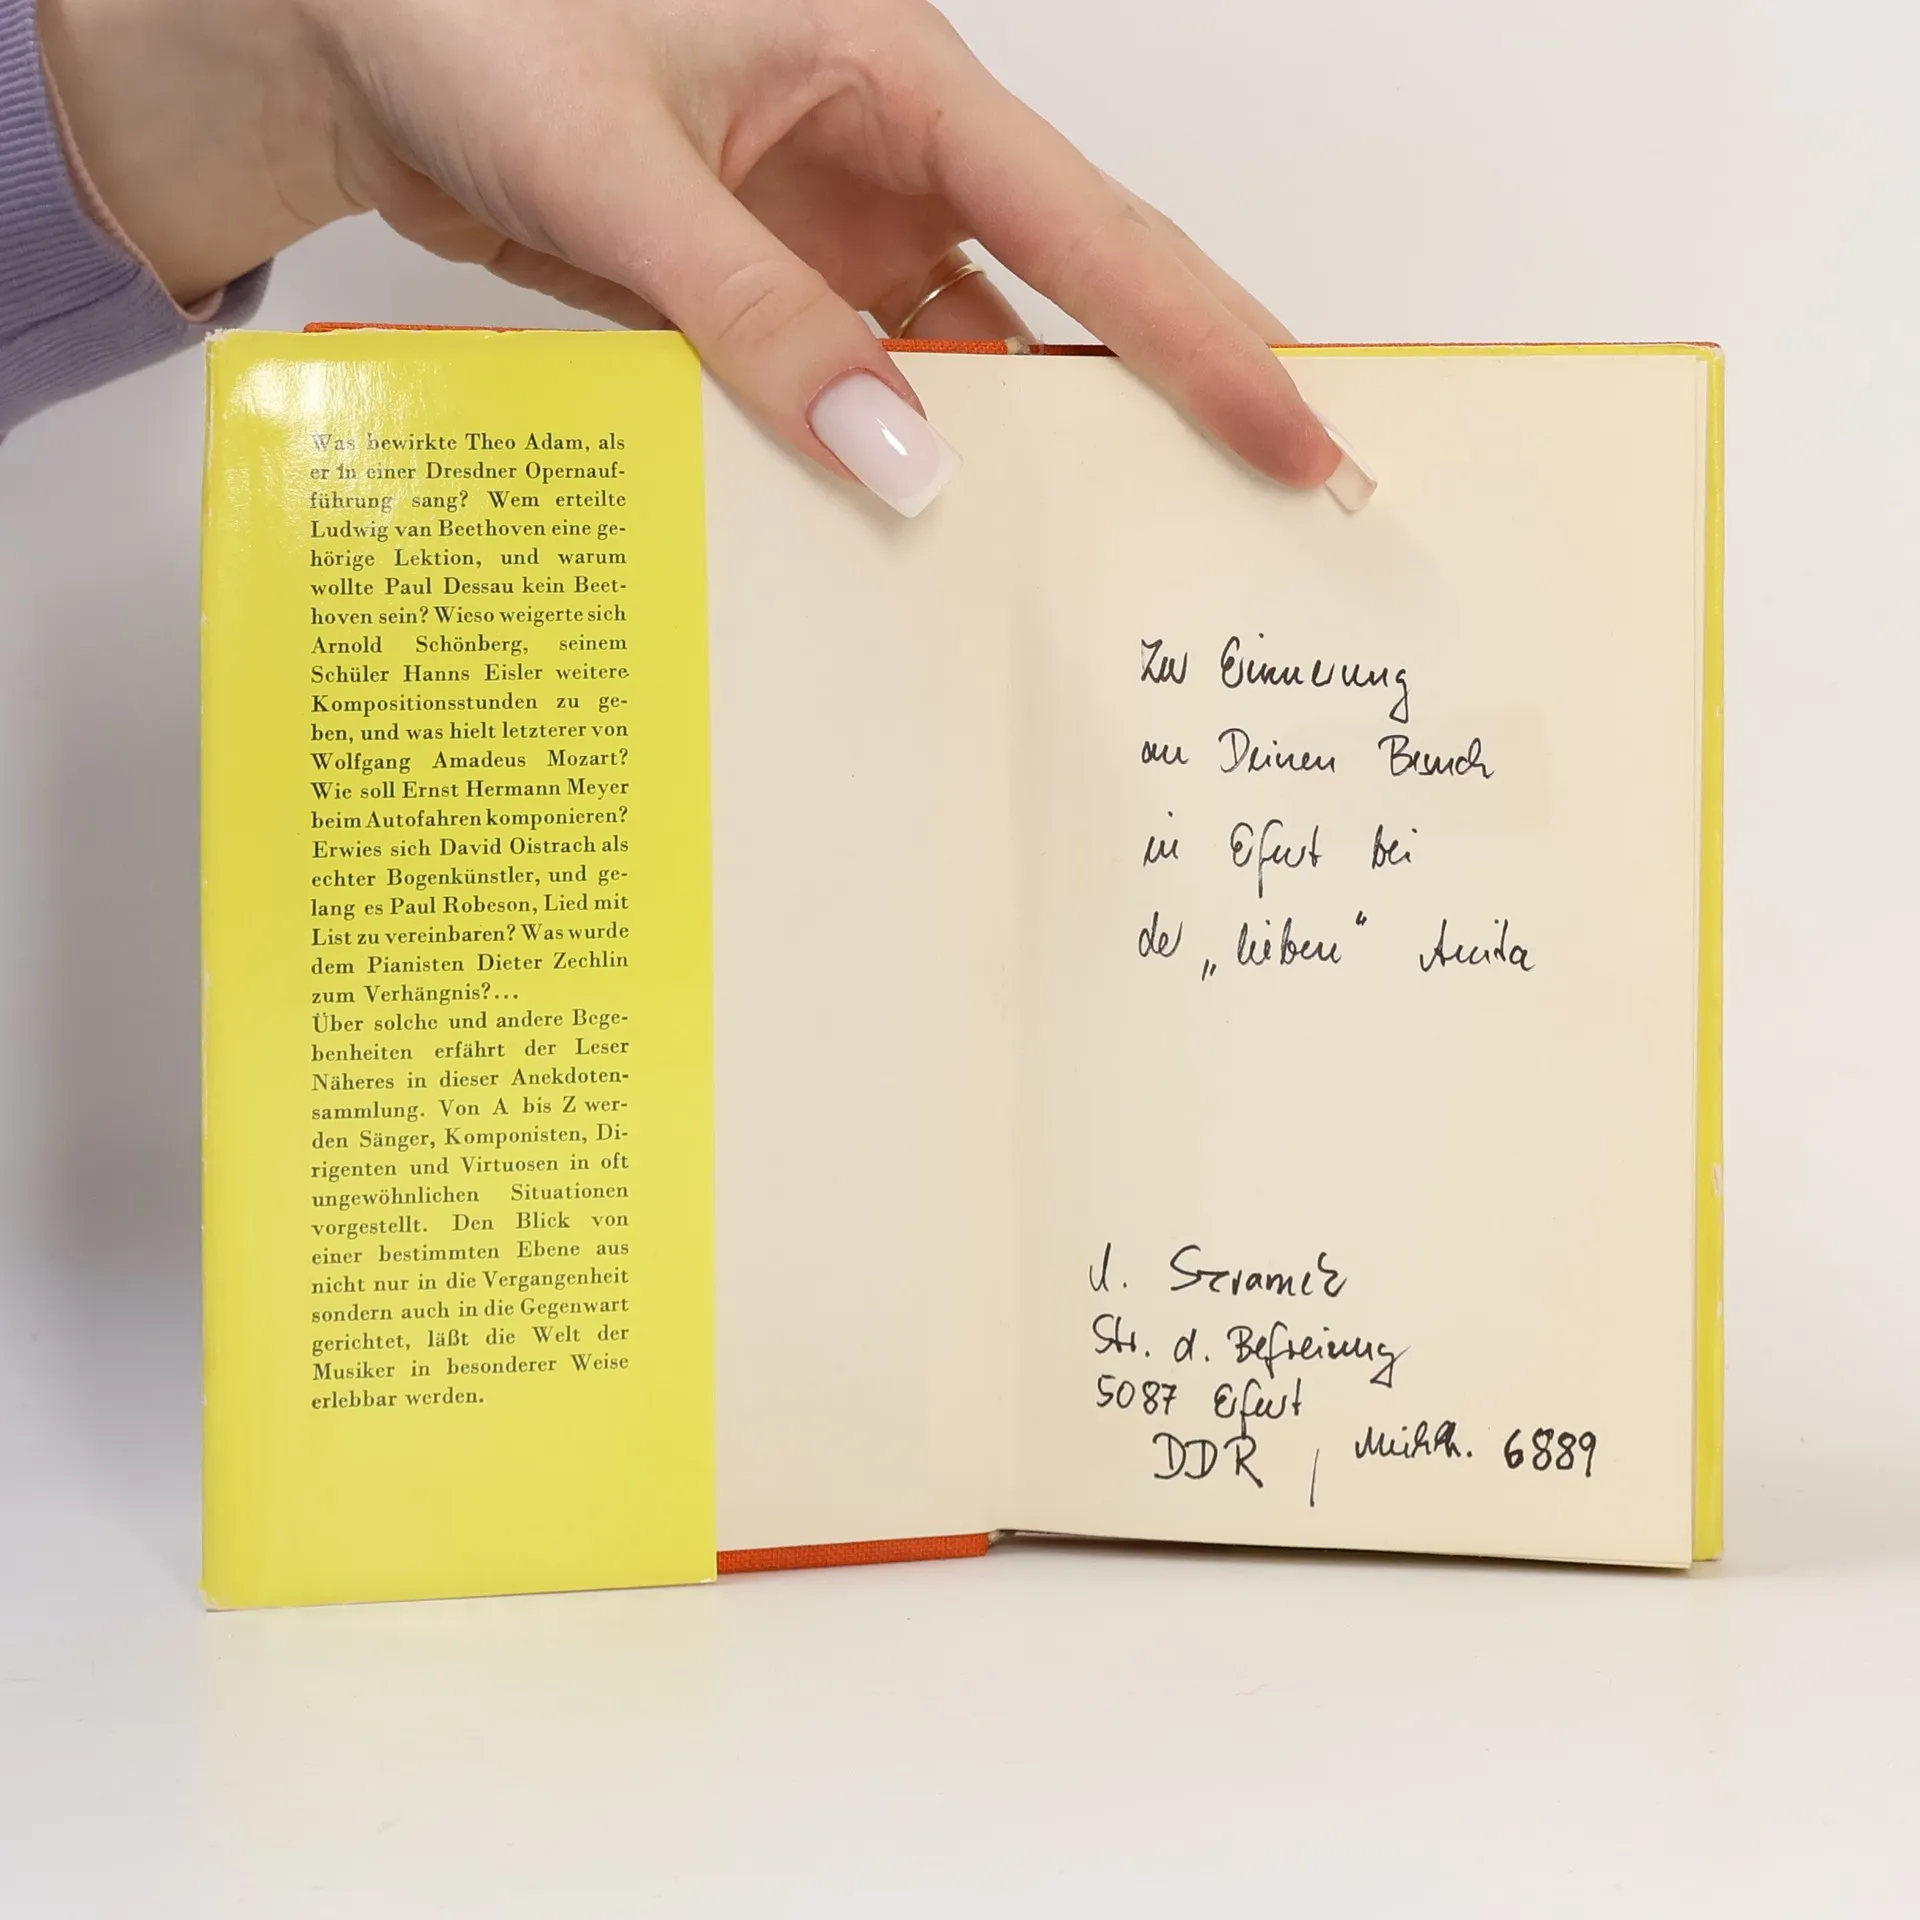 Was bewirkte Theo Adam, als
er in einer Dresdner Opernauf-
führung sang? Wem erteilte
Ludwig van Beethoven eine ge-
hörige Lektion, und warum
wollte Paul Dessau kein Beet-
hoven sein? Wieso weigerte sich
Arnold Schönberg, seinem
Schüler Hanns Eisler weitere
Kompositionsstunden zu ge-
ben, und was hielt letzterer von
Wolfgang Amadeus Mozart?
Wie soll Ernst Hermann Meyer
beim Autofahren komponieren?
Erwies sich David Oistrach als
echter Bogenkünstler, und ge-
lang es Paul Robeson, Lied mit
List zu vereinbaren? Was wurde
dem Pianisten Dieter Zechlin
zum Verhängnis?...
Über solche und andere Bege-
benheiten erfährt der Leser
Näheres in dieser Anekdoten-
sammlung. Von A bis Z wer-
den Sänger, Komponisten, Di-
rigenten und Virtuosen in oft
ungewöhnlichen Situationen
vorgestellt. Den Blick von
einer bestimmten Ebene aus
nicht nur in die Vergangenheit
sondern auch in die Gegenwart
gerichtet, läßt die Welt der
Musiker in besonderer Weise
erlebbar werden.
Zur Erinnerung
an Deinen Besuch
in Erfurt bei
der „lieben“ Anita
Str. d. Befreiung
5087 Erfurt
DDR / 6889